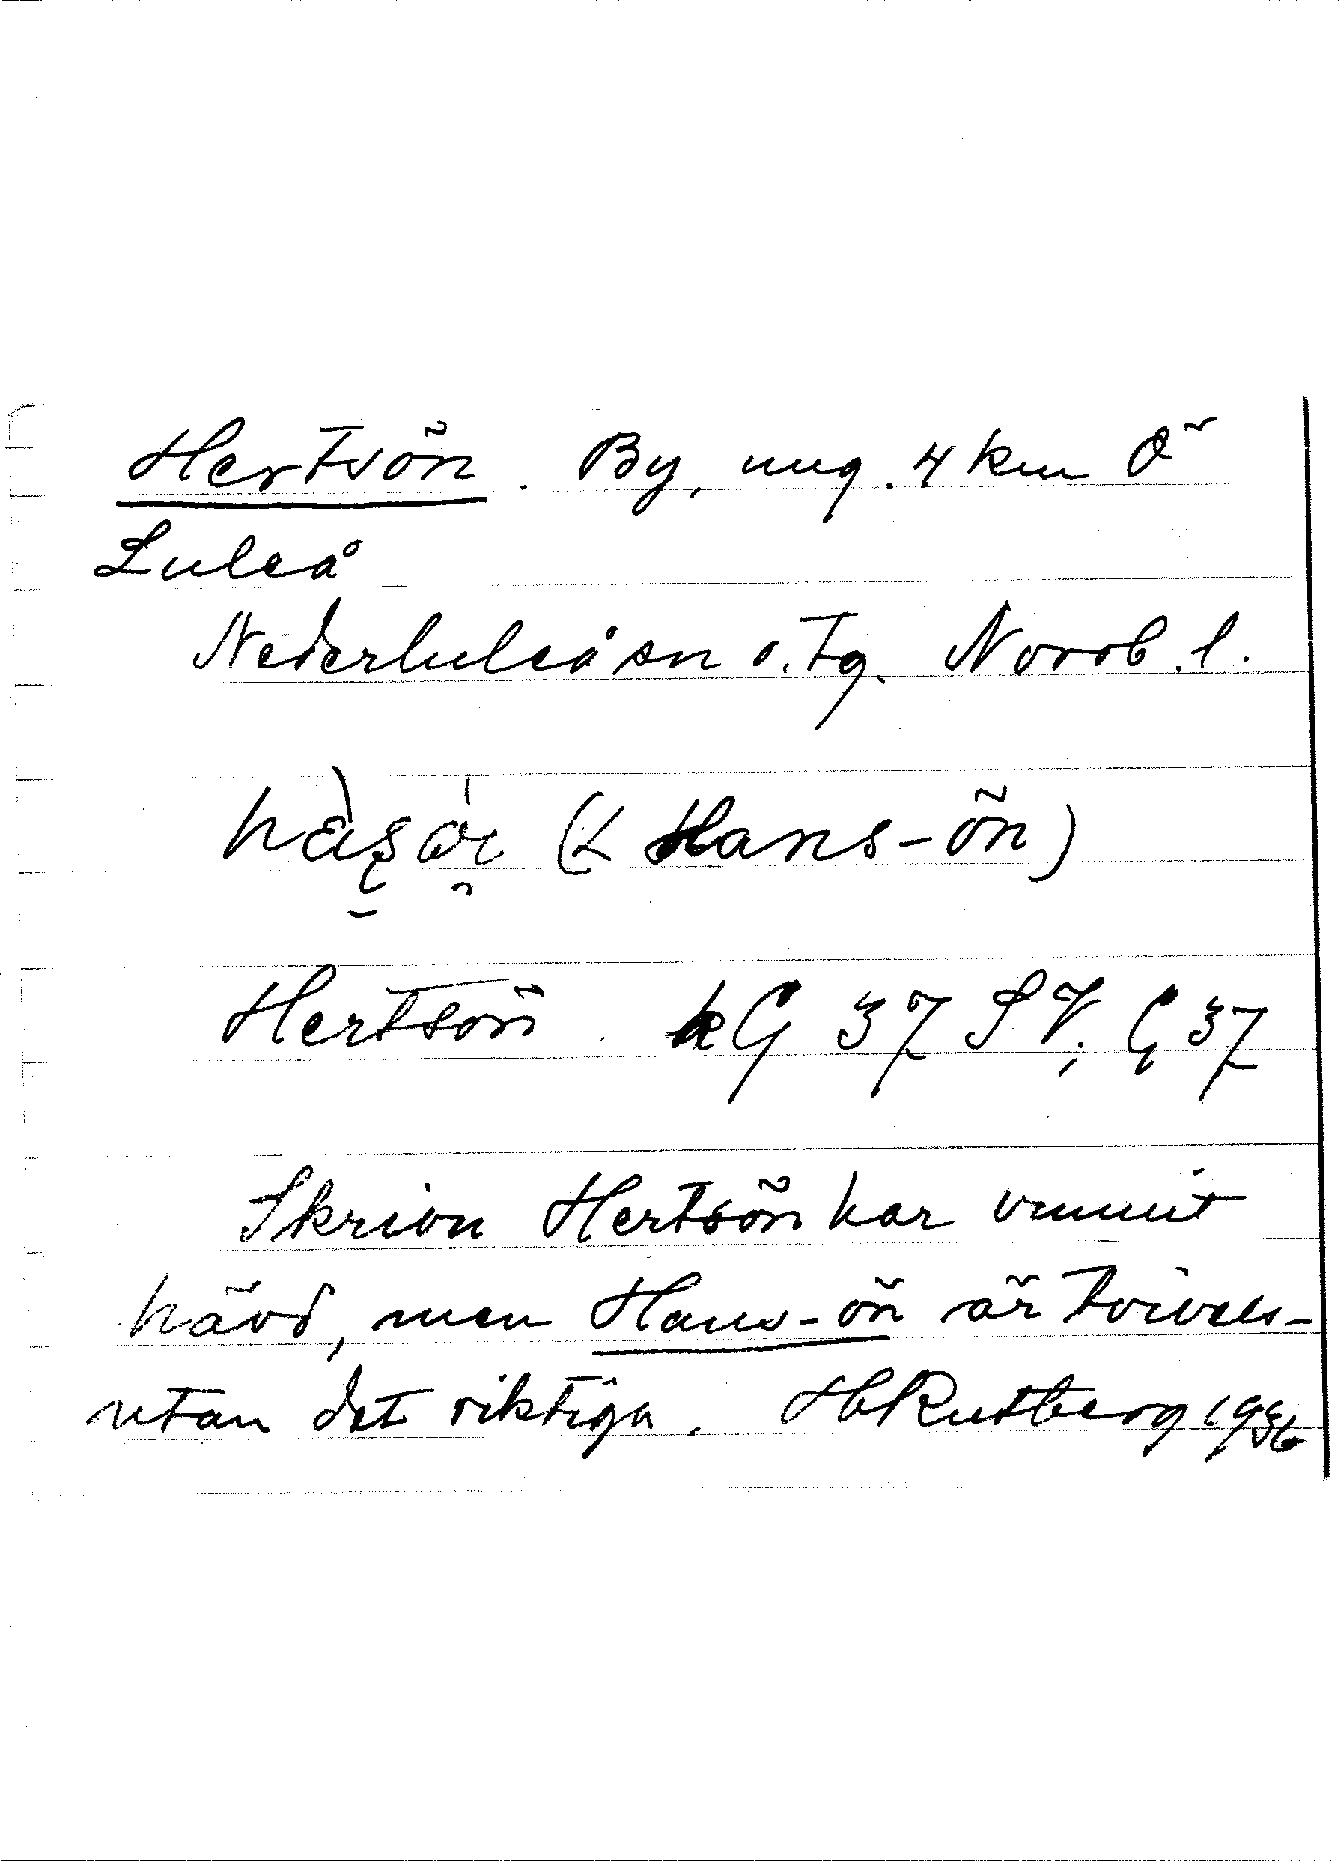 Hertsön. By, ung. 4 km Ö
Luleå
Nederluleå sn o. tg. Norrb. l.
(< Hans-ön)
Hertsön kG 37 SV; G 37
Skrivn Hertsön har vunnit
hävd, men Hans-ön är tvivels-
utan det riktiga. HRutberg 1936